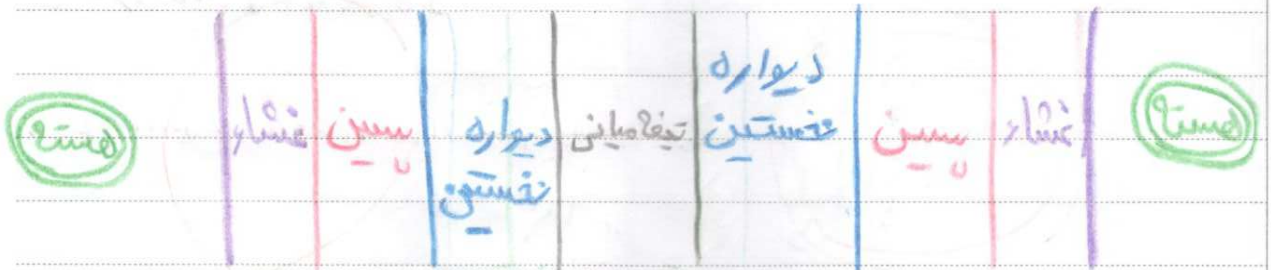 هسته
غشاء
پسین
دیواره
نخستین
تیغه میانی
دیواره
نخستین
پسین
غشاء
هسته